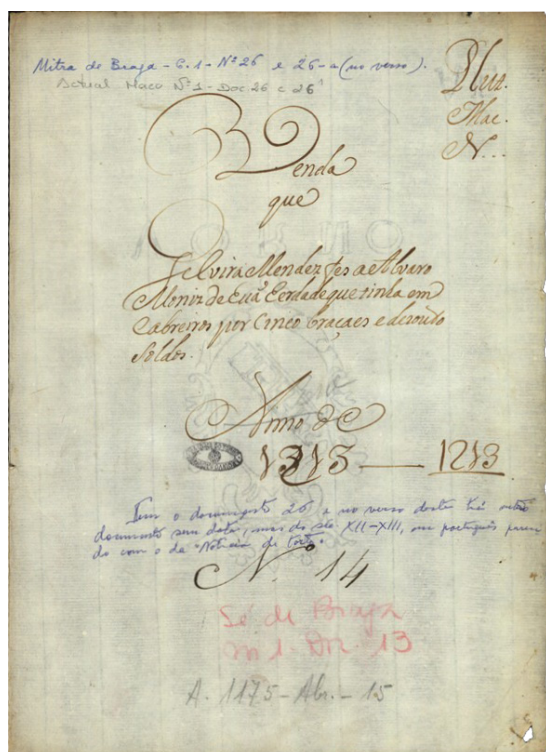 Mitra de Braga - C. 1 - Nº 26 e 26-a (no verso).
Actual Maço Nº 1 - Doc. 26 e 26ª
Mac.
N...
Venda
que
Gelvira Mendez fes a Alvaro
Moniz de huã Herdade que tinha em
Cabreiros por Cinco bracaes e dezouto
Soldos.
Anno de
1313 — 1213
Tem o documento 26, e no verso deste há outro
documento sem data, mas do séc XII-XIII, em português pareci
do com o da "Noticia de torto".
N.º 14
Sé de Braga
m 1. Doc. 13
A. 1175 - Abr. - 15